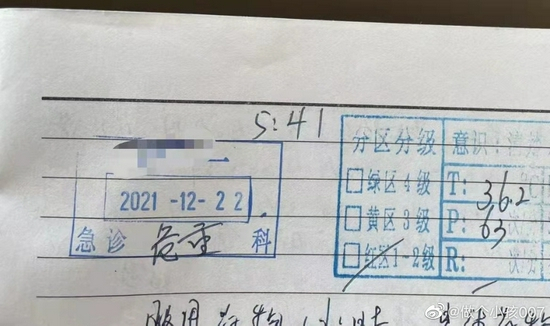 5:41
一
2021-12-22
急诊 危重 科
分区分级 意识:清
绿区4级 T: 36.2
黄区3级 P: 63 次
红区1-2级 R: 次
服用药物1小时